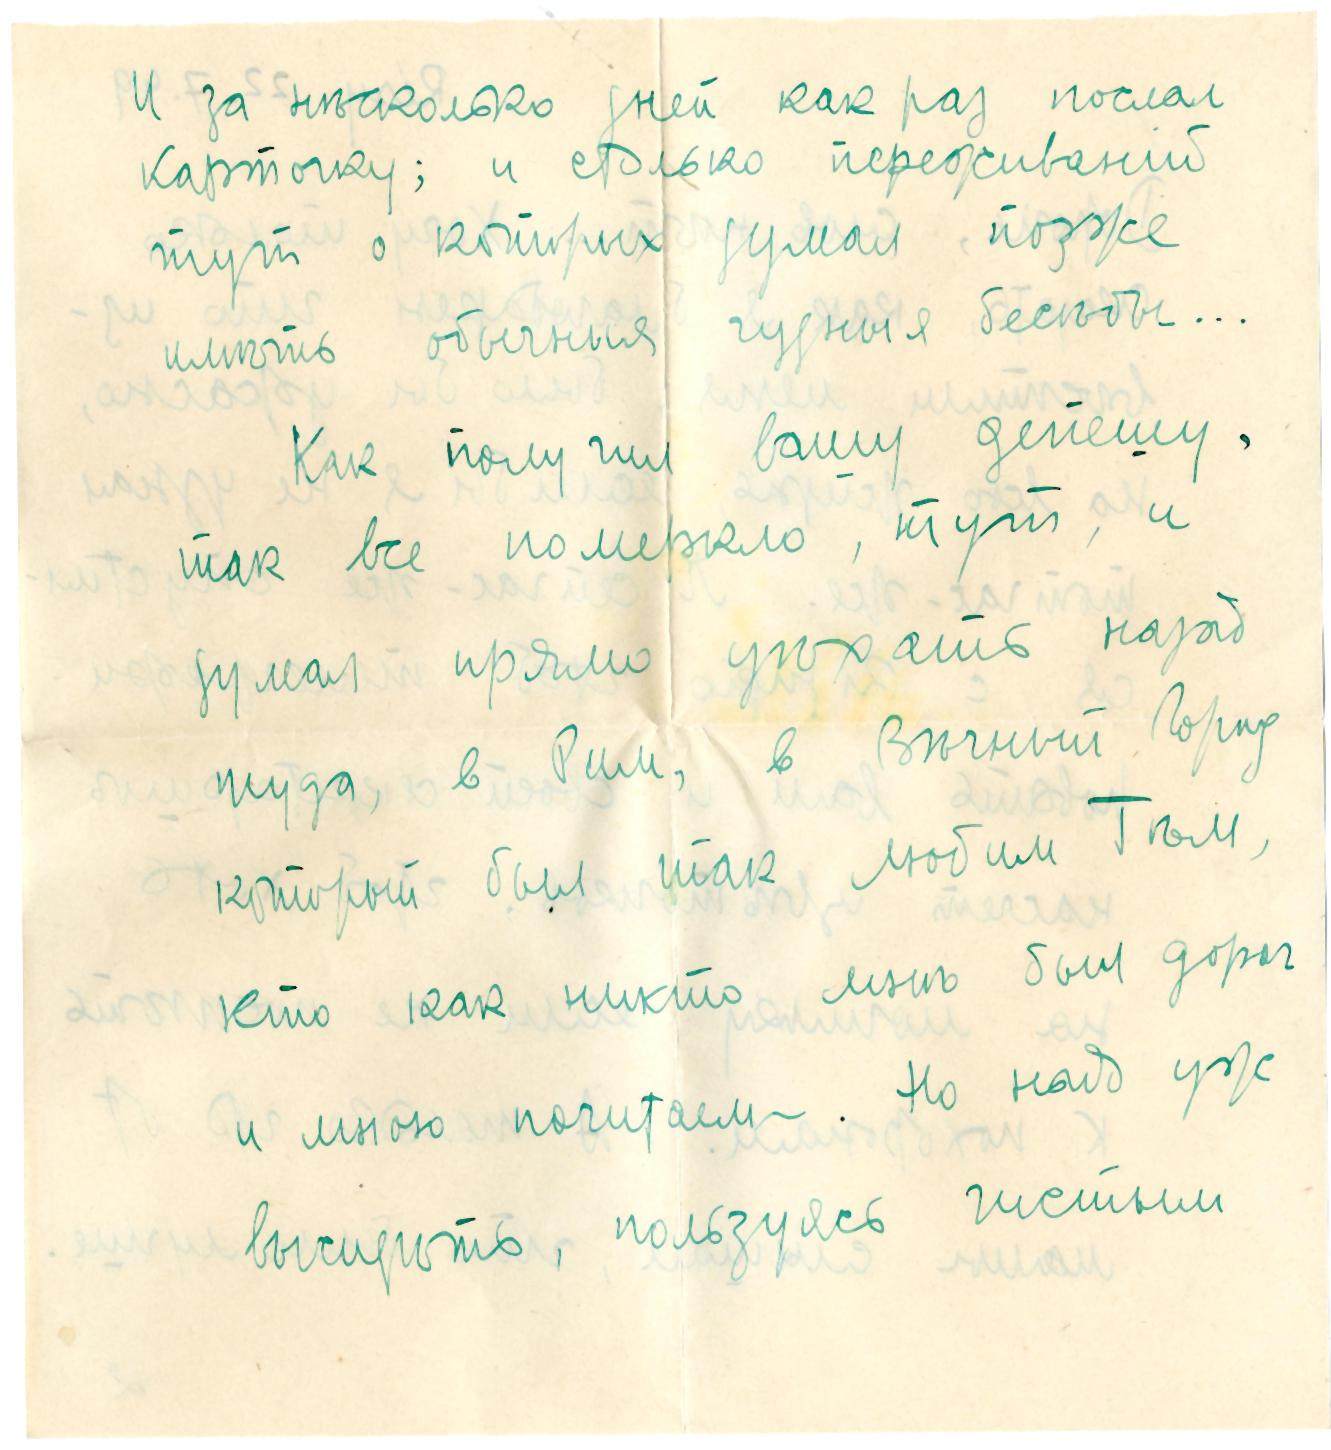 И за нѣсколько дней как раз послал
карточку; и столько переживанiй
тут о которых думал позже
имѣть обычныя чудныя бесѣды...
Как получил вашу депешу,
так все померкло, тут, и
думал прямо уѣхать назад
туда, в Рим, в Вѣчный Город
который был так любим Тѣм,
кто как никто мнѣ был дорог
и мною почитаем. Но надо уж
высидѣть, пользуясь чистым